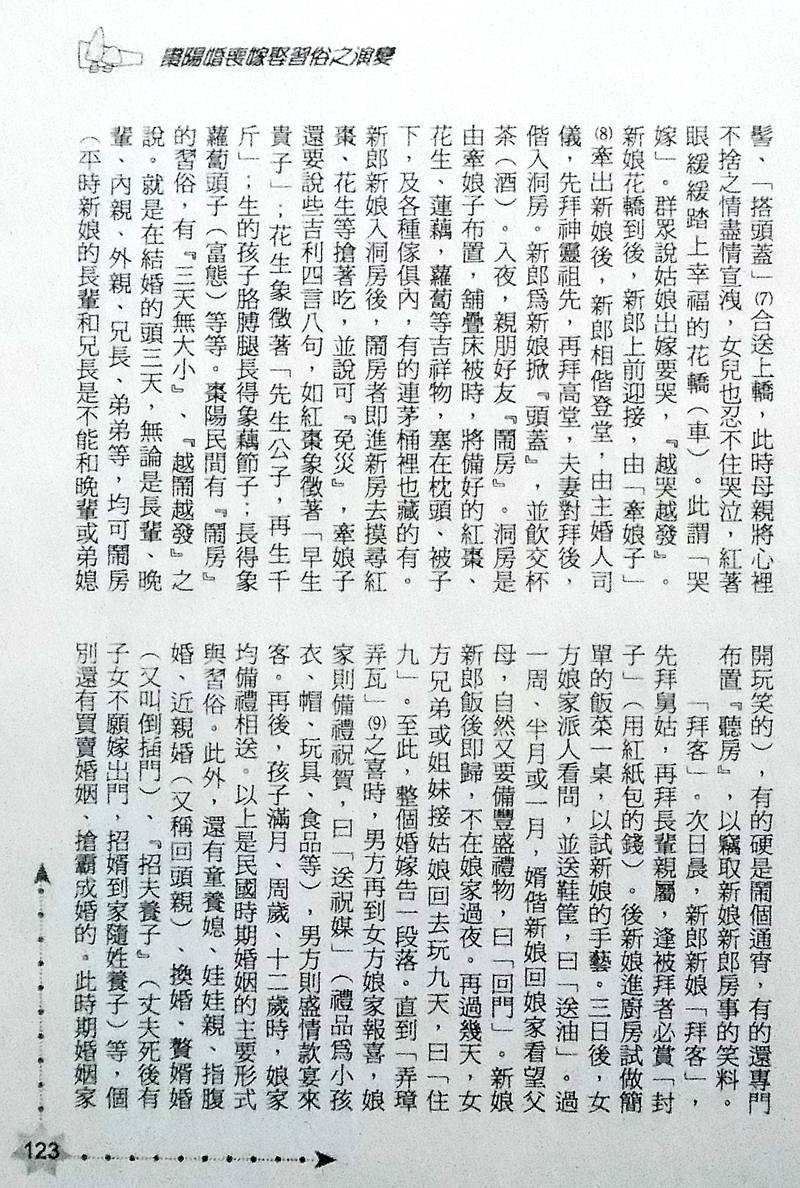 棗陽婚喪嫁娶習俗之演變
髻、「搭頭蓋」⑺合送上轎，此時母親將心裡
不捨之情盡情宣洩，女兒也忍不住哭泣，紅著
眼緩緩踏上幸福的花轎（車）。此謂「哭
嫁」。群眾說姑娘出嫁要哭，『越哭越發』。
新娘花轎到後，新郎上前迎接，由「牽娘子」
⑻牽出新娘後，新郎相偕登堂，由主婚人司
儀，先拜神靈祖先，再拜高堂，夫妻對拜後，
偕入洞房。新郎為新娘掀『頭蓋』，並飲交杯
茶（酒）。入夜，親朋好友『鬧房』。洞房是
由牽娘子布置，舖疊床被時，將備好的紅棗、
花生、蓮藕，蘿蔔等吉祥物，塞在枕頭、被子
下，及各種傢俱內，有的連茅桶裡也藏的有。
新郎新娘入洞房後，鬧房者即進新房去摸尋紅
棗、花生等搶著吃，並說可『免災』，牽娘子
還要說些吉利四言八句，如紅棗象徵著「早生
貴子」；花生象徵著「先生公子，再生千
斤」；生的孩子胳膊腿長得象藕節子；長得象
蘿蔔頭子（富態）等等。棗陽民間有『鬧房』
的習俗，有『三天無大小』、『越鬧越發』之
說。就是在結婚的頭三天，無論是長輩、晚
輩、內親、外親、兄長、弟弟等，均可鬧房
（平時新娘的長輩和兄長是不能和晚輩或弟媳
開玩笑的），有的硬是鬧個通宵，有的還專門
布置『聽房』，以竊取新娘新郎房事的笑料。
「拜客」。次日晨，新郎新娘「拜客」，
先拜舅姑，再拜長輩親屬，逢被拜者必賞「封
子」（用紅紙包的錢）。後新娘進廚房試做簡
單的飯菜一桌，以試新娘的手藝。三日後，女
方娘家派人看問，並送鞋筐，曰「送油」。過
一周、半月或一月，婿偕新娘回娘家看望父
母，自然又要備豐盛禮物，曰「回門」。新娘
新郎飯後即歸，不在娘家過夜。再過幾天，女
方兄弟或姐妹接姑娘回去玩九天，曰「住
九」。至此，整個婚嫁告一段落。直到「弄璋
弄瓦」⑼之喜時，男方再到女方娘家報喜，娘
家則備禮祝賀，曰「送祝媒」（禮品為小孩
衣、帽、玩具、食品等），男方則盛情款宴來
客。再後，孩子滿月、周歲、十二歲時，娘家
均備禮相送。以上是民國時期婚姻的主要形式
與習俗。此外，還有童養媳、娃娃親、指腹
婚、近親婚（又稱回頭親）、換婚、贅婿婚
（又叫倒插門）、『招夫養子』（丈夫死後有
子女不願嫁出門，招婿到家隨姓養子）等，個
別還有買賣婚姻、搶霸成婚的。此時期婚姻家
123